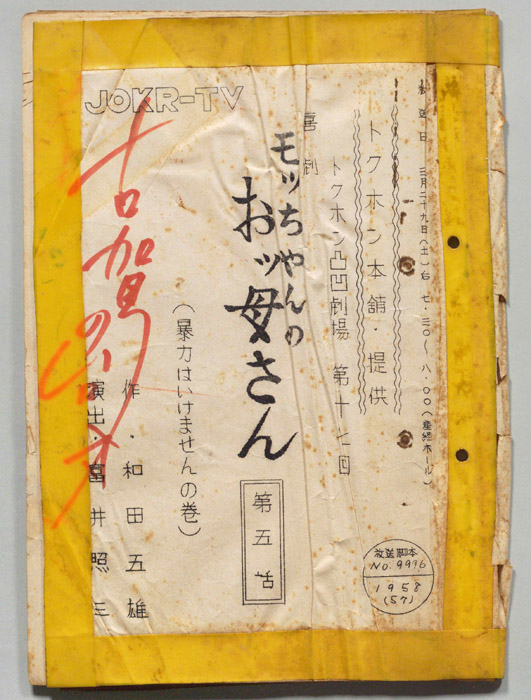 放送日 三月二十九日(土)后 七・三〇〜八・〇〇(産経ホール)
トクホン本舗・提供
トクホン凸凹劇場 第十七回
喜劇
モッちゃんの
おッ母さん
第五話
(暴力はいけませんの巻)
作・和田五雄
演出・冨井照三
JOKR-TV
古賀
放送脚本
NO.9996
1958
(57)